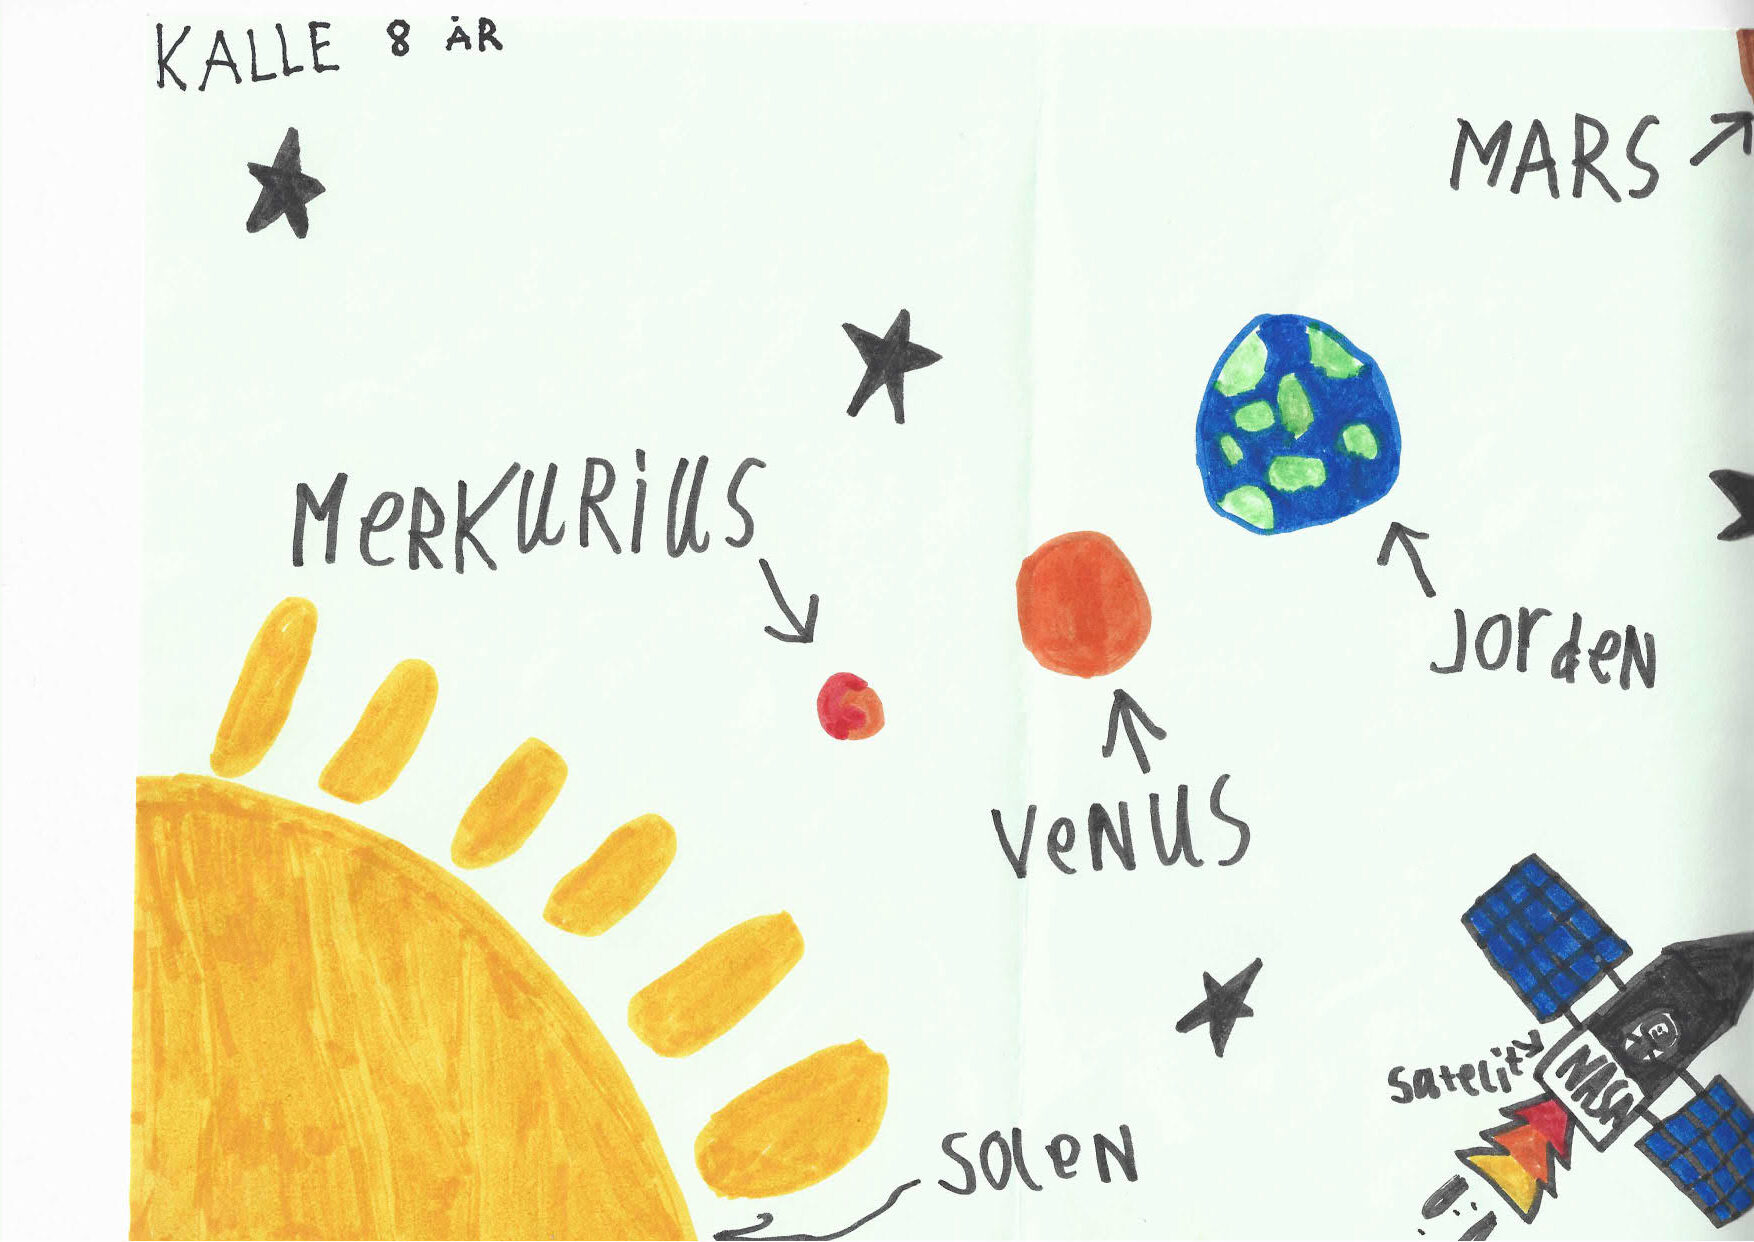 KALLE 8 ÅR
MARS
MeRKURiUS
JOrdeN
VeNUS
Satelit
NASA
SOleN